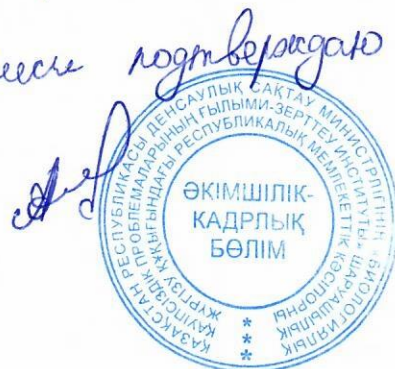 подтверждаю
ҚАЗАҚСТАН РЕСПУБЛИКАСЫ ДЕНСАУЛЫҚ САҚТАУ МИНИСТРЛІГІНІҢ «БИОЛОГИЯЛЫҚ
ҚАУІПСІЗДІК ПРОБЛЕМАЛАРЫНЫҢ ҒЫЛЫМИ-ЗЕРТТЕУ ИНСТИТУТЫ» ШАРУАШЫЛЫҚ
ЖҮРГІЗУ ҚҰҚЫҒЫНДАҒЫ РЕСПУБЛИКАЛЫҚ МЕМЛЕКЕТТІК КӘСІПОРНЫ
ӘКІМШІЛІК-
КАДРЛЫҚ
БӨЛІМ